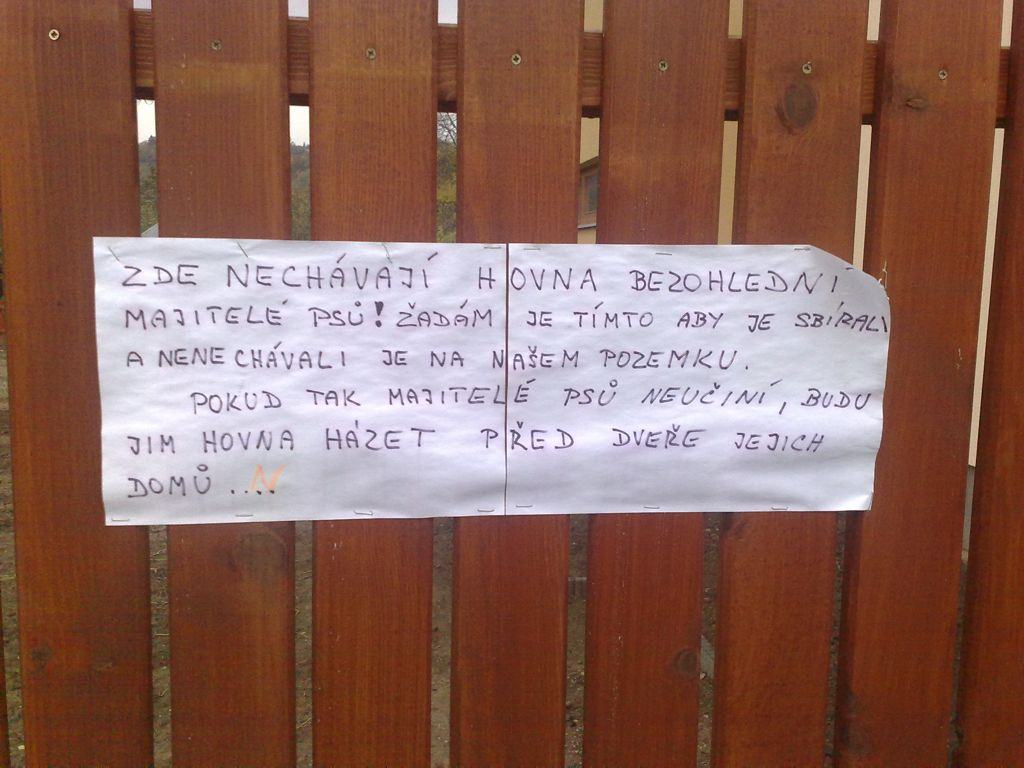 ZDE NECHÁVAJÍ HOVNA BEZOHLEDNÍ
MAJITELÉ PSŮ! ŽADÁM JE TÍMTO ABY JE SBÍRALI
A NENECHÁVALI JE NA NAŠEM POZEMKU.
POKUD TAK MAJITELÉ PSŮ NEUČINÍ, BUDU
JIM HOVNA HÁZET PŘED DVEŘE JEJICH
DOMŮ .... N